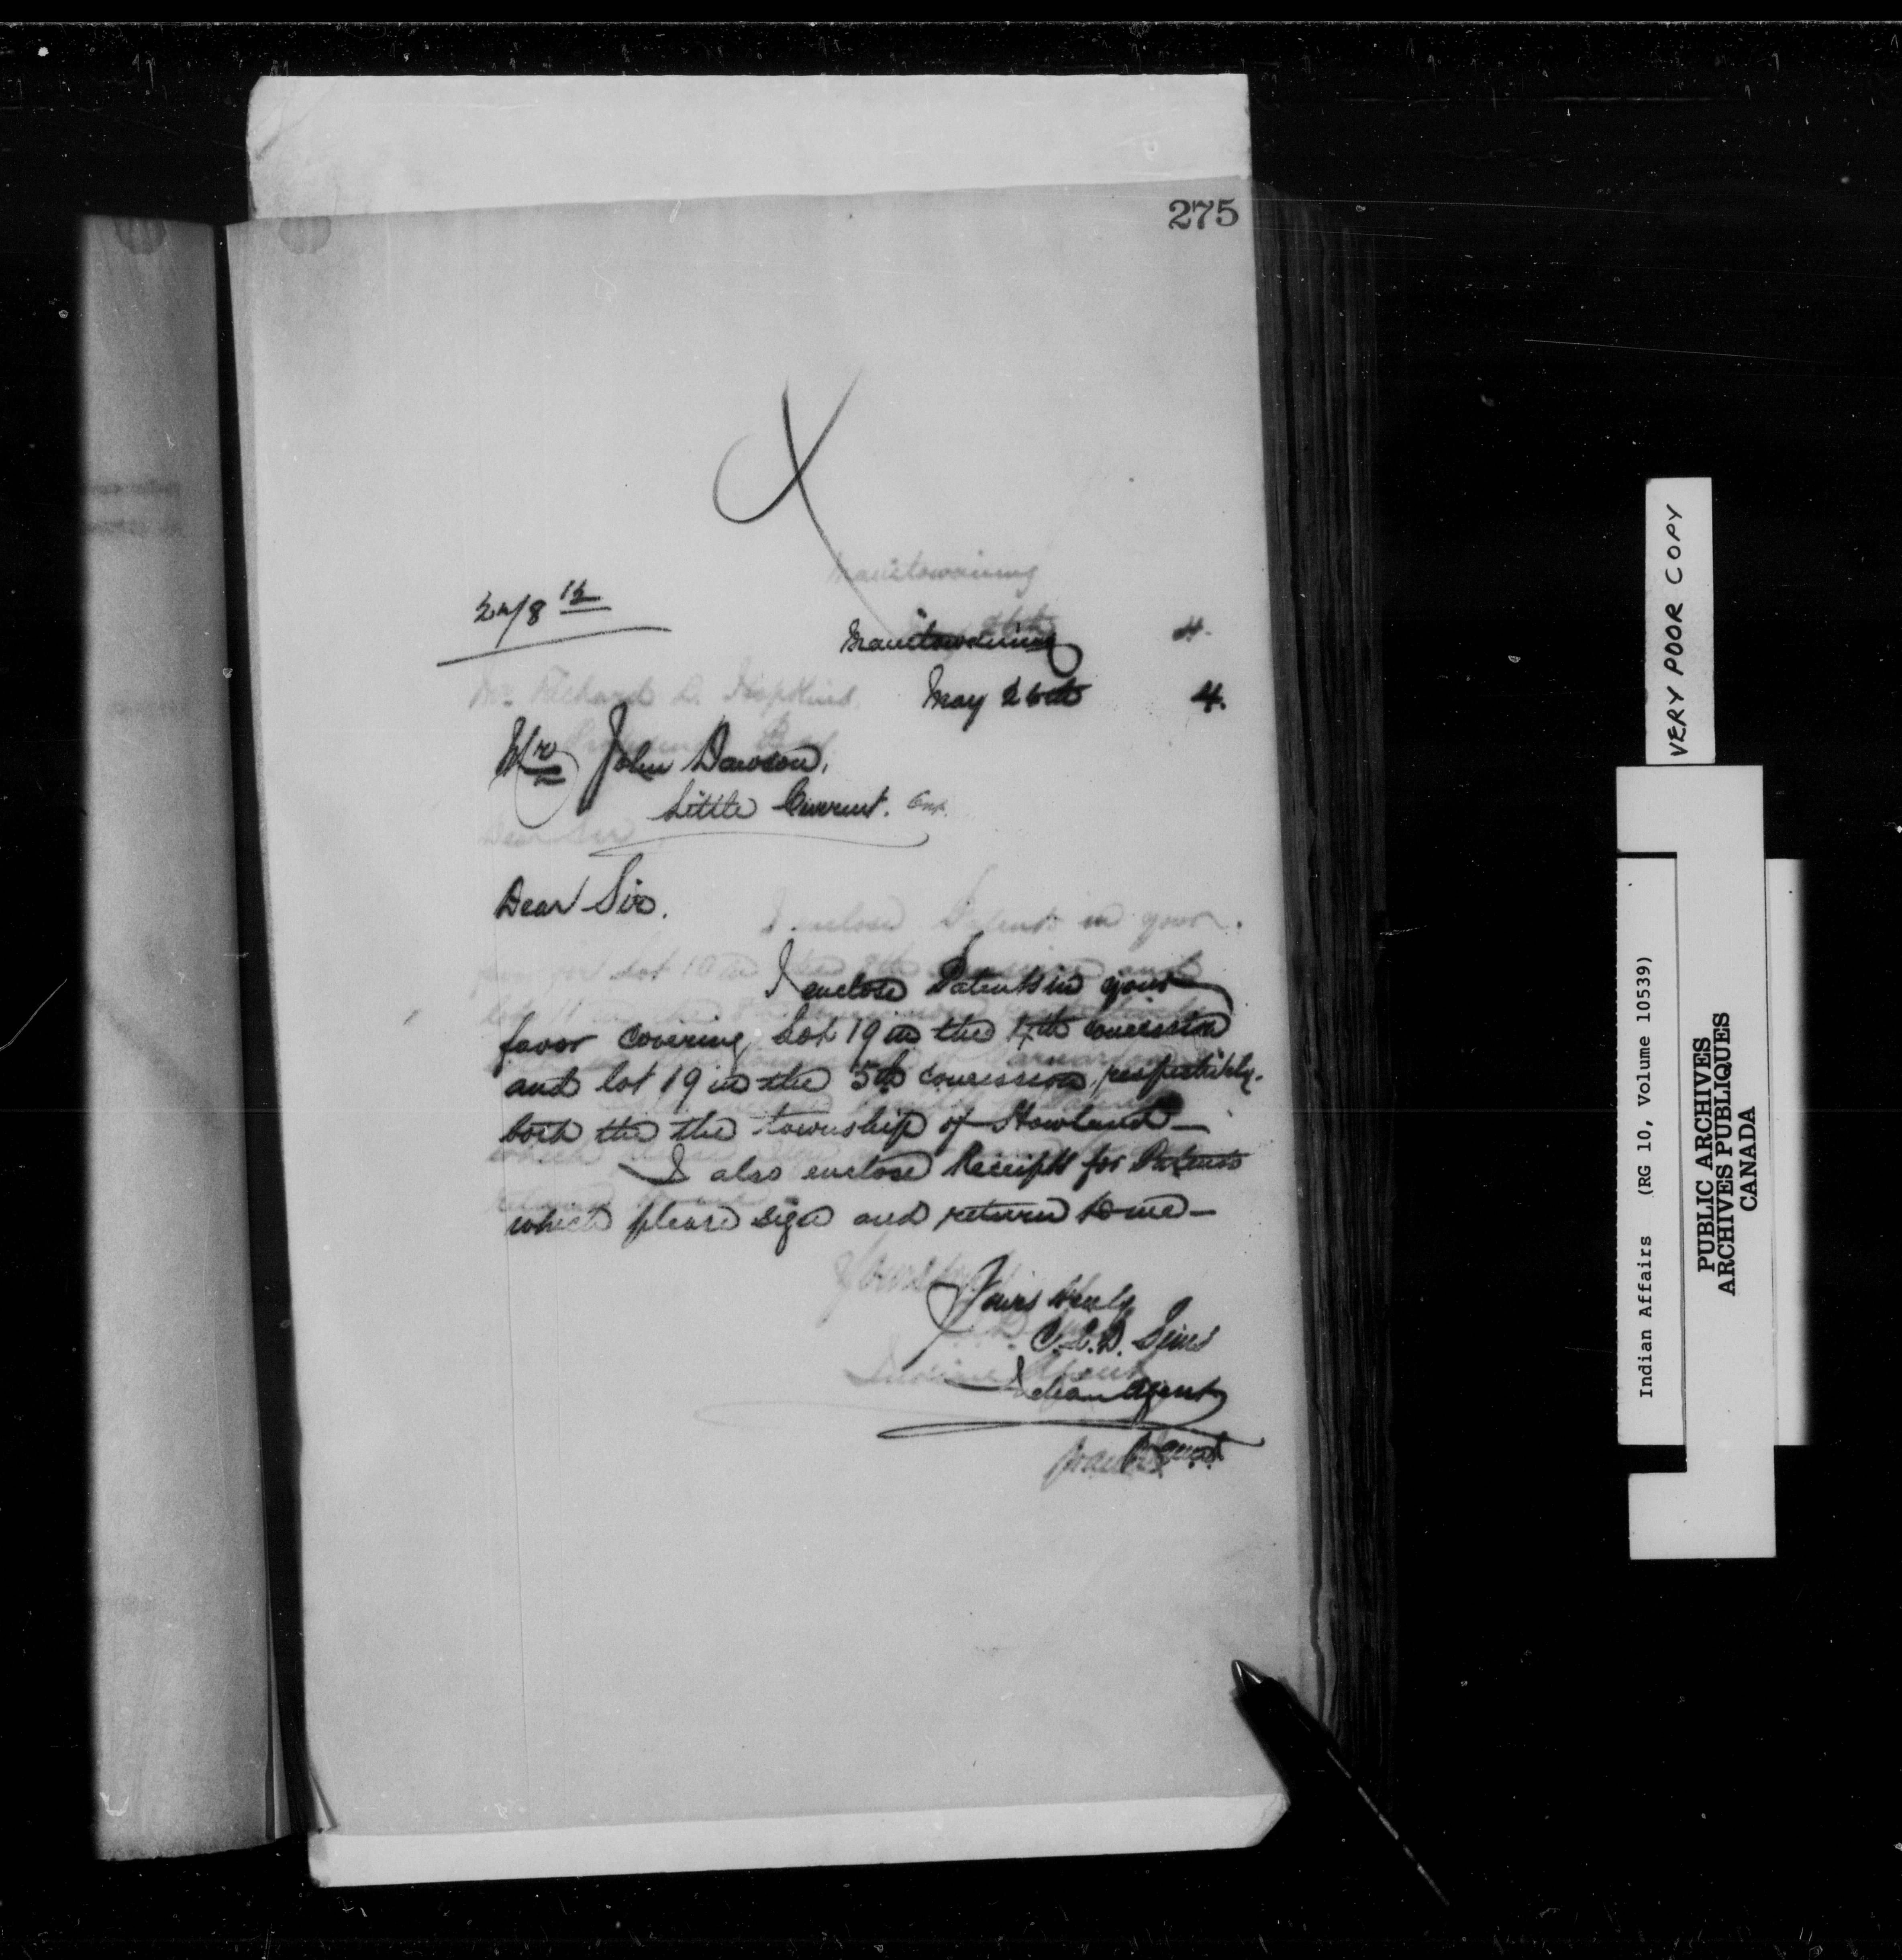 275
Manitowaning
Manitowaning 4.
May 26th 4.
Mr. Richard D. Hopkins.
Mr John Dawson,
Little Current. Ont.
Dear Sir
Dear Sir.
I enclose Patents in your
I enclose Patents in your
favor covering Lot 19 in the 4th concession
and lot 19 in the 5th concession, respectively.
both the the township of Howland—
I also enclose Receipts for Patents
which please sign and return to me—
Yours truly
C.L.D. Sims
Indian Agent
VERY POOR COPY
Indian Affairs (RG 10, Volume 10539)
PUBLIC ARCHIVES
ARCHIVES PUBLIQUES
CANADA